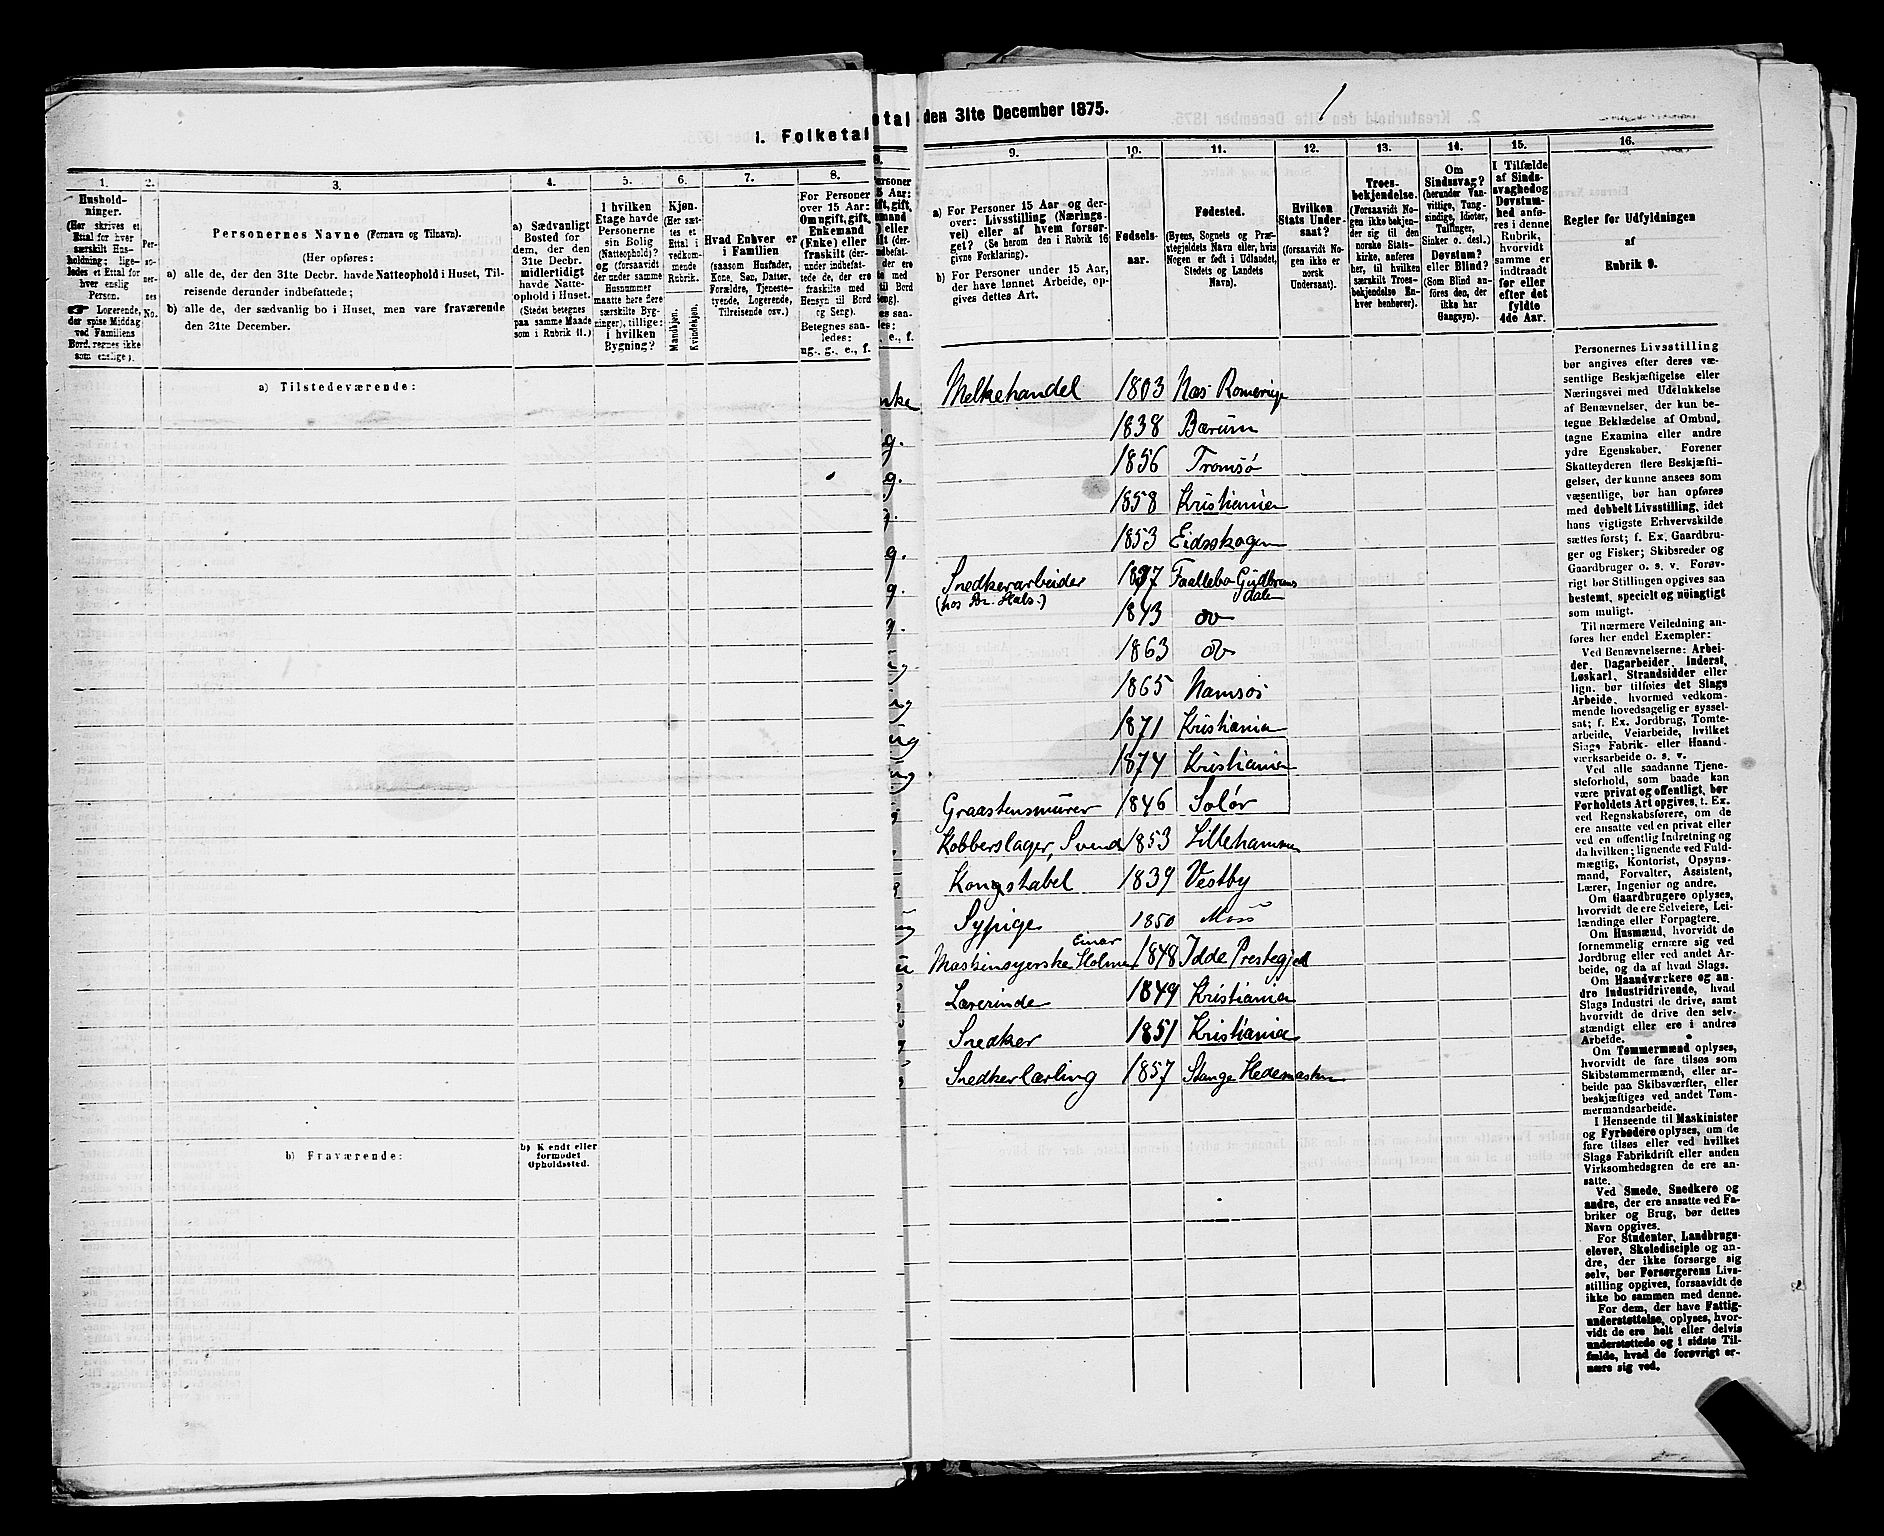 1. Folketal
etal den 31te December 1875.
1.
Hushold-
ninger.
(Her skrives et
Ettal for hver
særskilt Hus-
holdning; lige-
ledes et Ettal for
hver enslig
Person.
Logerende,
der spise Middag
ved Familiens
Bord, regnes ikke
som enslige).
2.
Per-
so-
ner-
nes
No.
3.
Personernes Navne (Fornavn og Tilnavn).
(Her opføres:
a) alle de, der den 31te Decbr. havde Natteophold i Huset, Til-
reisende derunder indbefattede;
b) alle de, der sædvanlig bo i Huset, men vare fraværende
den 31te December.
4.
a) Sædvanligt
Bosted for
dem, der den
31te Decbr.
midlertidigt
havde Natte-
ophold i Huset.
(Stedet betegnes
paa samme Maade
som i Rubrik 11.)
5.
I hvilken
Etage havde
Personerne
sin Bolig
(Natteophold)?
og (forsaavidt
der under samme
Husnummer
maatte høre flere
særskilte Byg-
ninger), tillige:
i hvilken
Bygning?
6.
Kjøn.
(Her sæt-
tes et
Ettal i
vedkom-
mende
Rubrik.
Mandkjøn.
Kvindekjøn.
7.
Hvad Enhver er
i Familien
(saasom Husfader,
Kone, Søn, Datter,
Forældre, Tjeneste-
tyende, Logerende,
Tilreisende osv.)
8.
For Personer
over 15 Aar:
Om ugift, gift,
Enkemand
(Enke) eller
fraskilt (der-
under indbefat-
tede de, der ere
fraskilte med
Hensyn til Bord
og Seng).
Betegnes saa-
ledes:
ug., g., e., f.
9.
a) For Personer 15 Aar og der-
over: Livsstilling (Nærings-
vei) eller af hvem forsør-
get? (Se herom den i Rubrik 16
givne Forklaring).
b) For Personer under 15 Aar,
der have lønnet Arbeide, op-
gives dettes Art.
10.
Fødsels-
aar.
11.
Fødested.
(Byens, Sognets og Præ-
stegjeldets Navn eller, hvis
Nogen er født i Udlandet,
Stedets og Landets
Navn).
12.
Hvilken
Stats Under-
saat?
(forsaavidt No-
gen ikke er
norsk
Undersaat).
13.
Troes-
bekjendelse.
(Forsaavidt No-
gen ikke bekjen-
der sig til den
norske Stats-
kirke, anføres
her, til hvilken
særskilt Troes-
bekjendelse En-
hver henhører).
14.
Om
Sindssvag?
(herunder Van-
vittige, Tung-
sindige, Idioter,
Sinker o. desl.)
Døvstum?
eller Blind?
(Som Blind an-
føres den, der
ikke har
Gangsyn).
15.
I Tilfælde
af Sinds-
svaghed og
Døvstum-
hed anfø-
res i denne
Rubrik,
hvorvidt
samme er
indtraadt
før eller
efter det
fyldte
4de Aar.
16.
Regler for Udfyldningen
af
Rubrik 9.
a) Tilstedeværende:
Melkehandel 1803 Næs Romerige
1838 Bærum
1856 Tromsø
1858 Kristiania
1853 Eidsskogen
Snedkerarbeider 1837 Faalebo Gudbrans
dalen
(hos Br. Hals.) 1843 do
1863 do
1865 Namsos
1871 Kristiania
1874 Kristiania
Graastensmurer 1846 Solør
Kobberslager, Svend 1853 Lillehammer
Kongstabel 1839 Vestby
Sypige 1850 Moss
Einar
Maskinsyerske Holmen 1848 Idde Prestegjeld
Lærerinde 1849 Kristiania
Snedker 1851 Kristiania
Snedkerlærling 1857 Stange Hedemarken
b) Fraværende:
b) Kjendt eller
formodet
Opholdssted.
Personernes Livsstilling
bør angives efter deres væ-
sentlige Beskjæftigelse eller
Næringsvei med Udelukkelse
af Benævnelser, der kun be-
tegne Beklædelse af Ombud,
tagne Examina eller andre
ydre Egenskaber. Forener
Skatteyderen flere Beskjæfti-
gelser, der kunne ansees som
væsentlige, bør han opføres
med dobbelt Livsstilling, idet
hans vigtigste Erhvervskilde
sættes først; f. Ex. Gaardbru-
ger og Fisker; Skibsreder og
Gaardbruger o. s. v. Forøv-
rigt bør Stillingen opgives saa
bestemt, specielt og nöiagtigt
som muligt.
Til nærmere Veiledning an-
føres her endel Exempler:
Ved Benævnelserne: Arbei-
der, Dagarbeider, Inderst,
Løskarl, Strandsidder eller
lign. bør tilføies det Slags
Arbeide, hvormed vedkom-
mende hovedsagelig er syssel-
sat; f. Ex. Jordbrug, Tomte-
arbeide, Veiarbeide, hvilket
Slags Fabrik- eller Haand-
værksarbeide o. s. v.
Ved alle saadanne Tjene-
steforhold, som baade kan
være privat og offentligt, bør
Forholdets Art opgives, t. Ex.
ved Regnskabsførere, om de
ere ansatte ved en privat eller
ved en offentlig Indretning og
da hvilken; lignende ved Fuld-
mægtig, Kontorist, Opsyns-
mand, Forvalter, Assistent,
Lærer, Ingeniør og andre.
Om Gaardbrugere oplyses,
hvorvidt de ere Selveiere, Lei-
lændinge eller Forpagtere.
Om Husmænd, hvorvidt de
fornemmelig ernære sig ved
Jordbrug eller ved andet Ar-
beide, og da af hvad Slags.
Om Haandværkere og an-
dre Industridrivende, hvad
Slags Industri de drive, samt
hvorvidt de drive den selv-
stændigt eller ere i andres
Arbeide.
Om Tømmermænd oplyses,
hvorvidt de fare tilsøs som
Skibstømmermænd, eller ar-
beide paa Skibsværfter, eller
beskjæftiges ved andet Tøm-
mermandsarbeide.
I Henseende til Maskinister
og Fyrbødere oplyses, om de
fare tilsøs eller ved hvilket
Slags Fabrikdrift eller anden
Virksomhedsgren de ere an-
satte.
Ved Smede, Snedkere og
andre, der ere ansatte ved Fa-
briker og Brug, bør dettes
Navn opgives.
For Studenter, Landbrugs-
elever, Skoledisciple og an-
dre, der ikke forsørge sig
selv, bør Forsørgerens Livs-
stilling opgives, forsaavidt de
ikke bo sammen med denne.
For dem, der have Fattig-
understøttelse, oplyses, hvor-
vidt de ere helt eller delvis
understøttede og i sidste Til-
fælde, hvad de forøvrigt er-
nære sig ved.